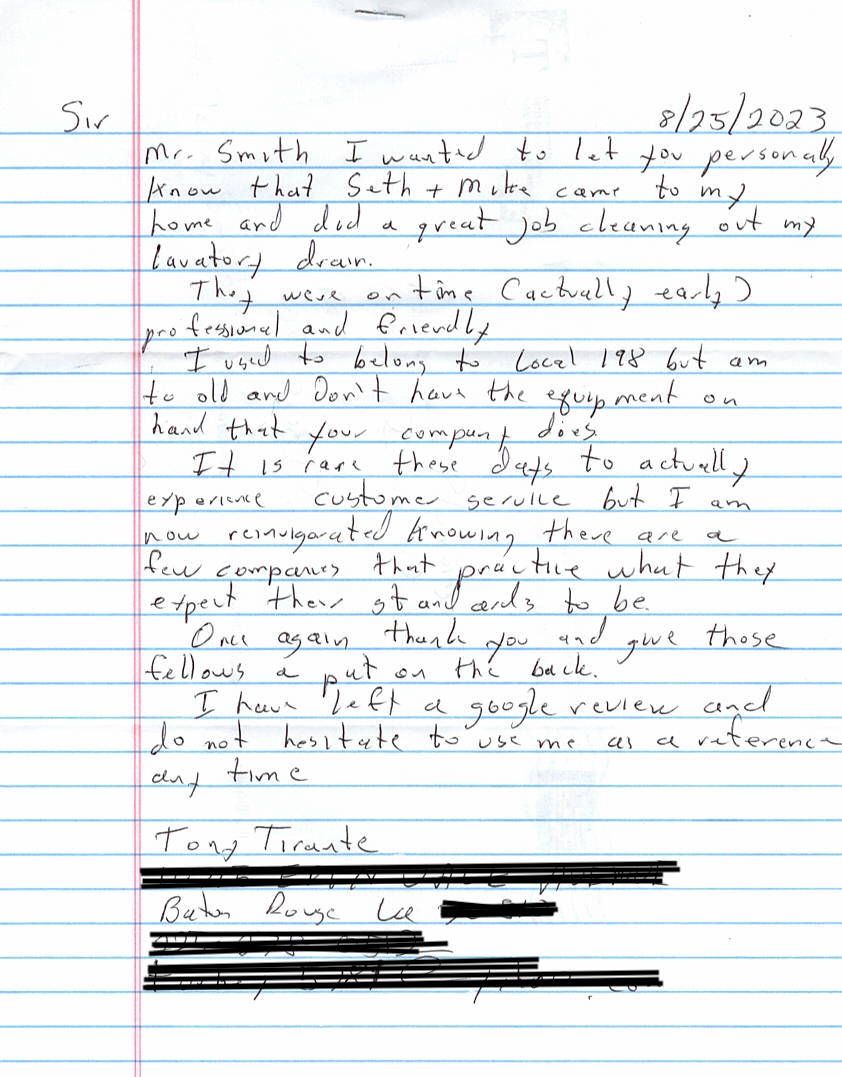 Sir 8/25/2023
Mr. Smith I wanted to let you personally
know that Seth + Mike came to my
home and did a great job cleaning out my
lavatory drain.
They were on time (actually early)
professional and friendly
I used to belong to Local 198 but am
to old and Don't have the equipment on
hand that your company does.
It is rare these days to actually
experience customer service but I am
now reinvigorated knowing there are a
few companies that practice what they
expect their standards to be.
Once again thank you and give those
fellows a pat on the back.
I have left a google review and
do not hesitate to use me as a reference
any time
Tony Tirante
Baton Rouge La